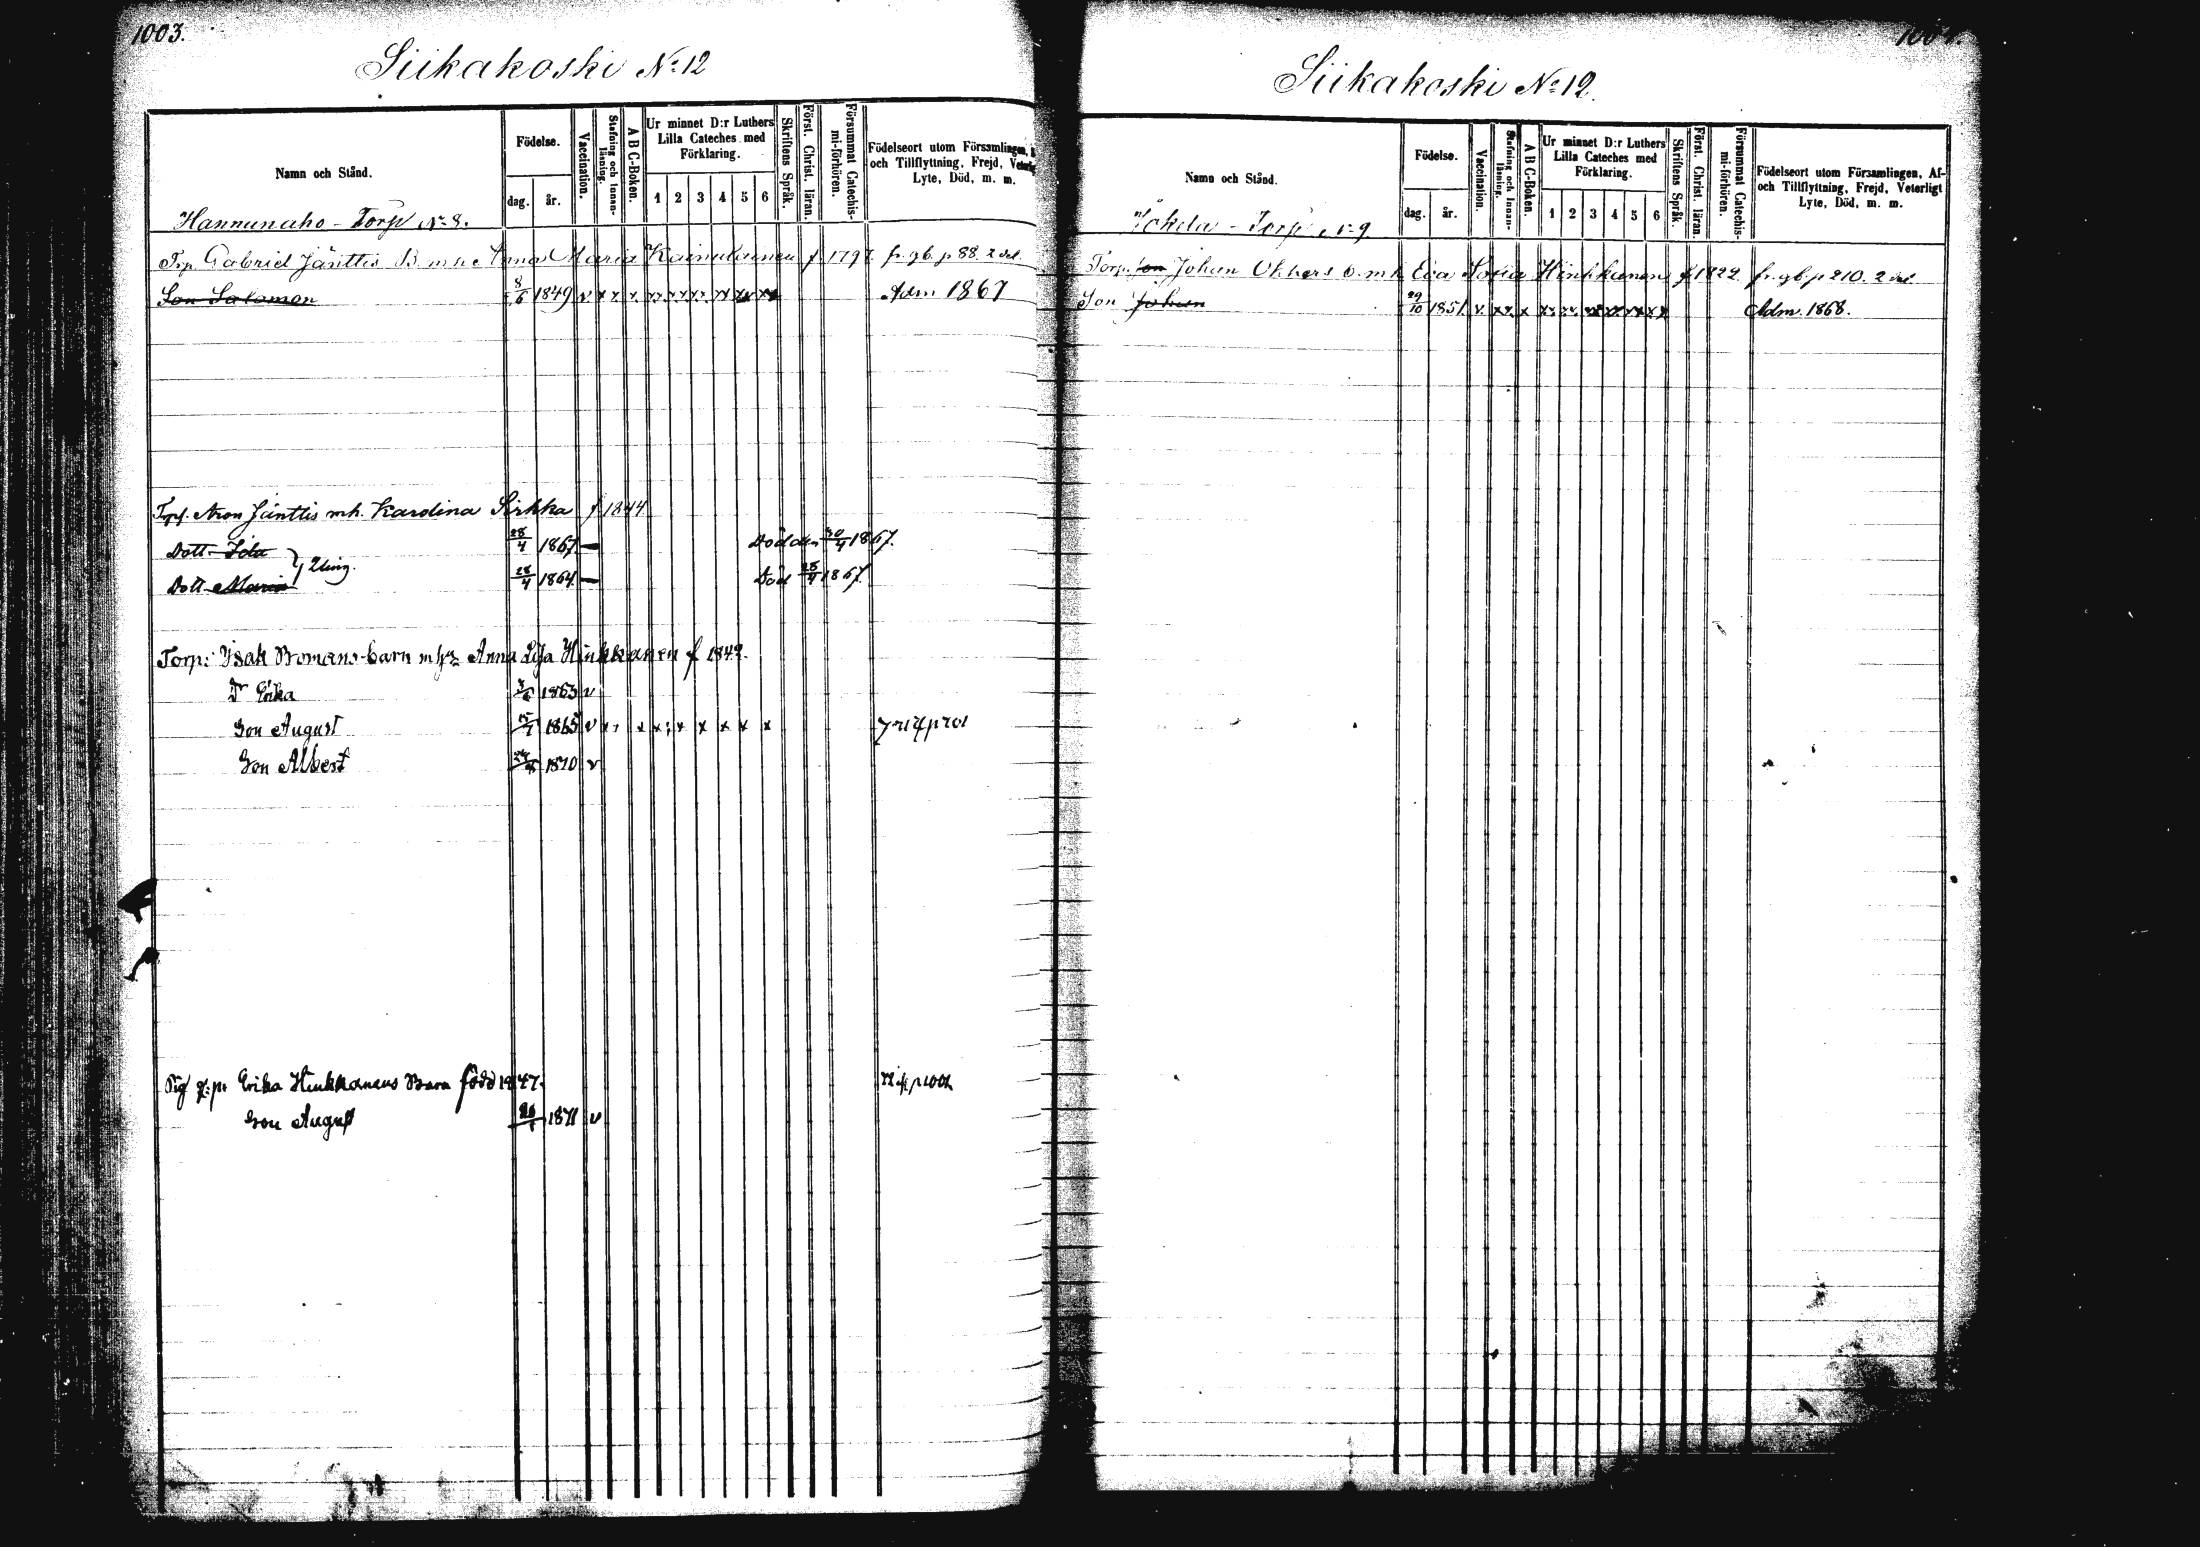 1003.
Siikakoski No 12
Namn och Stånd.
Födelse.
dag. år.
Vaccination.
Stafning och Innan-läsning.
A B C-Boken.
Ur minnet D:r Luthers Lilla Cateches med Förklaring.
1 2 3 4 5 6
Skriftens Språk.
Först. Christ. läran.
Försummat Catechis-mi-förhören.
Födelseort utom Församlingen,
och Tillflyttning, Frejd, Veterligt
Lyte, Död, m. m.
Hannunaho - Torp No 8.
Torp. Gabriel Jänttis B. m. h. Anna Maria Kainulainen f 1797. fr. gb. p 88. 2 del.
Son Salomon 8/6 1849 v x x x xx xx xx xx xx xx Adm 1867
Torp. Aron Jänttis mh. Karolina Sirkka f 1844
Dott. Ida 28/4 1867 — Död den 30/4 1867.
Dott. Maria 28/4 1864 — Död 28/4 1867.
} tling.
Torp: Isak Bomans barn m h Anna Lisa Hinkkanen f 1842.
D Erika 3/6 1863 v
Son August 15/7 1865 v x x x x x x x x x
Son Albert 24/8 1870 v
Erika Hinkkanens Barn född 1847.
Son August 26/1 1871 v
Siikakoski No 12.
Namn och Stånd.
Födelse.
dag. år.
Vaccination.
Stafning och Innan-läsning.
A B C-Boken.
Ur minnet D:r Luthers Lilla Cateches med Förklaring.
1 2 3 4 5 6
Skriftens Språk.
Först. Christ. läran.
Försummat Catechis-mi-förhören.
Födelseort utom Församlingen, Af-
och Tillflyttning, Frejd, Veterligt
Lyte, Död, m. m.
Torp No 9
Torp. son Johan Ukkers b. m h Eva Sofia Hinkkanen f 1822 fr. gb p 210. 2 del
Son Johan 29/10 1851 v. xx x xx xx xx xx xx xx Adm. 1868.